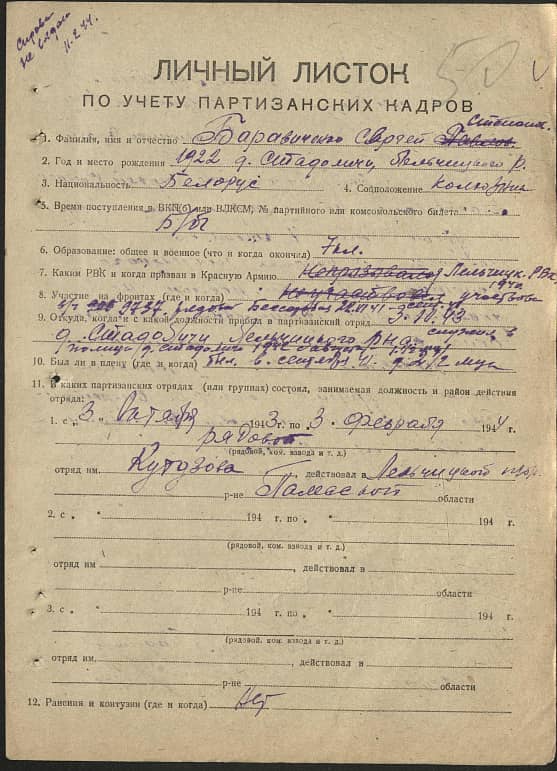 Справка
не выдана
11.2.44.
ЛИЧНЫЙ ЛИСТОК
ПО УЧЕТУ ПАРТИЗАНСКИХ КАДРОВ
1. Фамилия, имя и отчество Баравиченко Сергей
2. Год и место рождения 1922 д. Стадоличи, Лельчицкого р.
3. Национальность Белорус 4. Соцположение колхозник
5. Время поступления в ВКП(б) или ВЛКСМ, № партийного или комсомольского билета
Б/п
6. Образование: общее и военное (что и когда окончил) 7 кл.
7. Каким РВК и когда призван в Красную Армию Непризывался Лельчицк. РВК
1940
8. Участие на фронтах (где и когда) Неучаствовал участвовал
9. Откуда, когда и с какой должности прибыл в партизанский отряд 3.10.43
д. Стадоличи Лельчицкого р-на служил в
10. Был ли в плену (где и когда) был в сентябре 41.
11. В каких партизанских отрядах (или группах) состоял, занимаемая должность и район действия
отряда:
1. с „ 3 Октября 1943 г. по 3 февраля 1944 г.
рядовой
(рядовой, ком. взвода и т. д.)
отряд им. Кутузова, действовал в Лельчицком
р-не Полесской области
2. с „ " 194 г. по „ " 194 г.
(рядовой, ком. взвода и т. д.)
отряд им. , действовал в
р-не области
3. с „ " 194 г. по „ " 194 г.
(рядовой, ком. взвода и т. д.)
отряд им. , действовал в
р-не области
12. Ранения и контузии (где и когда) Нет